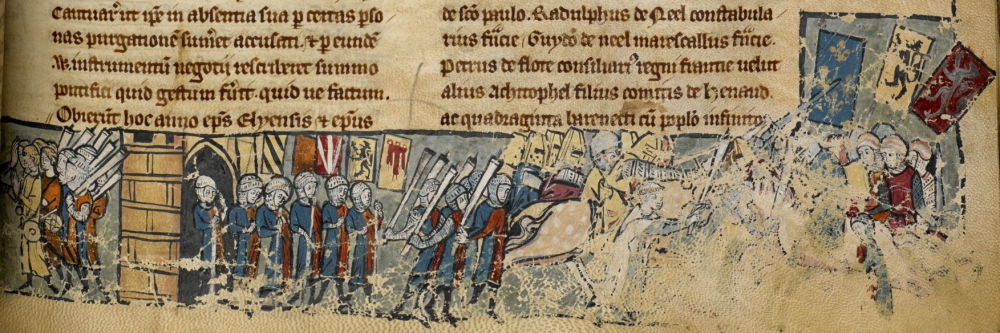 Cantuar' ut ip̄e in absentia sua p̱ certas p̱so
nas purgationē sum̄et accusati. ⁊ p̱ eundē
instrumentū negotii rescriberet summo
pontifici quid gestum fūit. quid ue factum.
Obierūt hoc anno ep̄s Elyensis ⁊ ep̄us
de sc̄o paulo. Radulphus de Neel constabula
rius fn̄cie, Guydo de neel marescallus fn̄cie.
Petrus de flote consiliari' regni francie uelut
alius Achitophel filius comitis de henaud.
ac quadraginta barenecti cū pop̱lo infinito